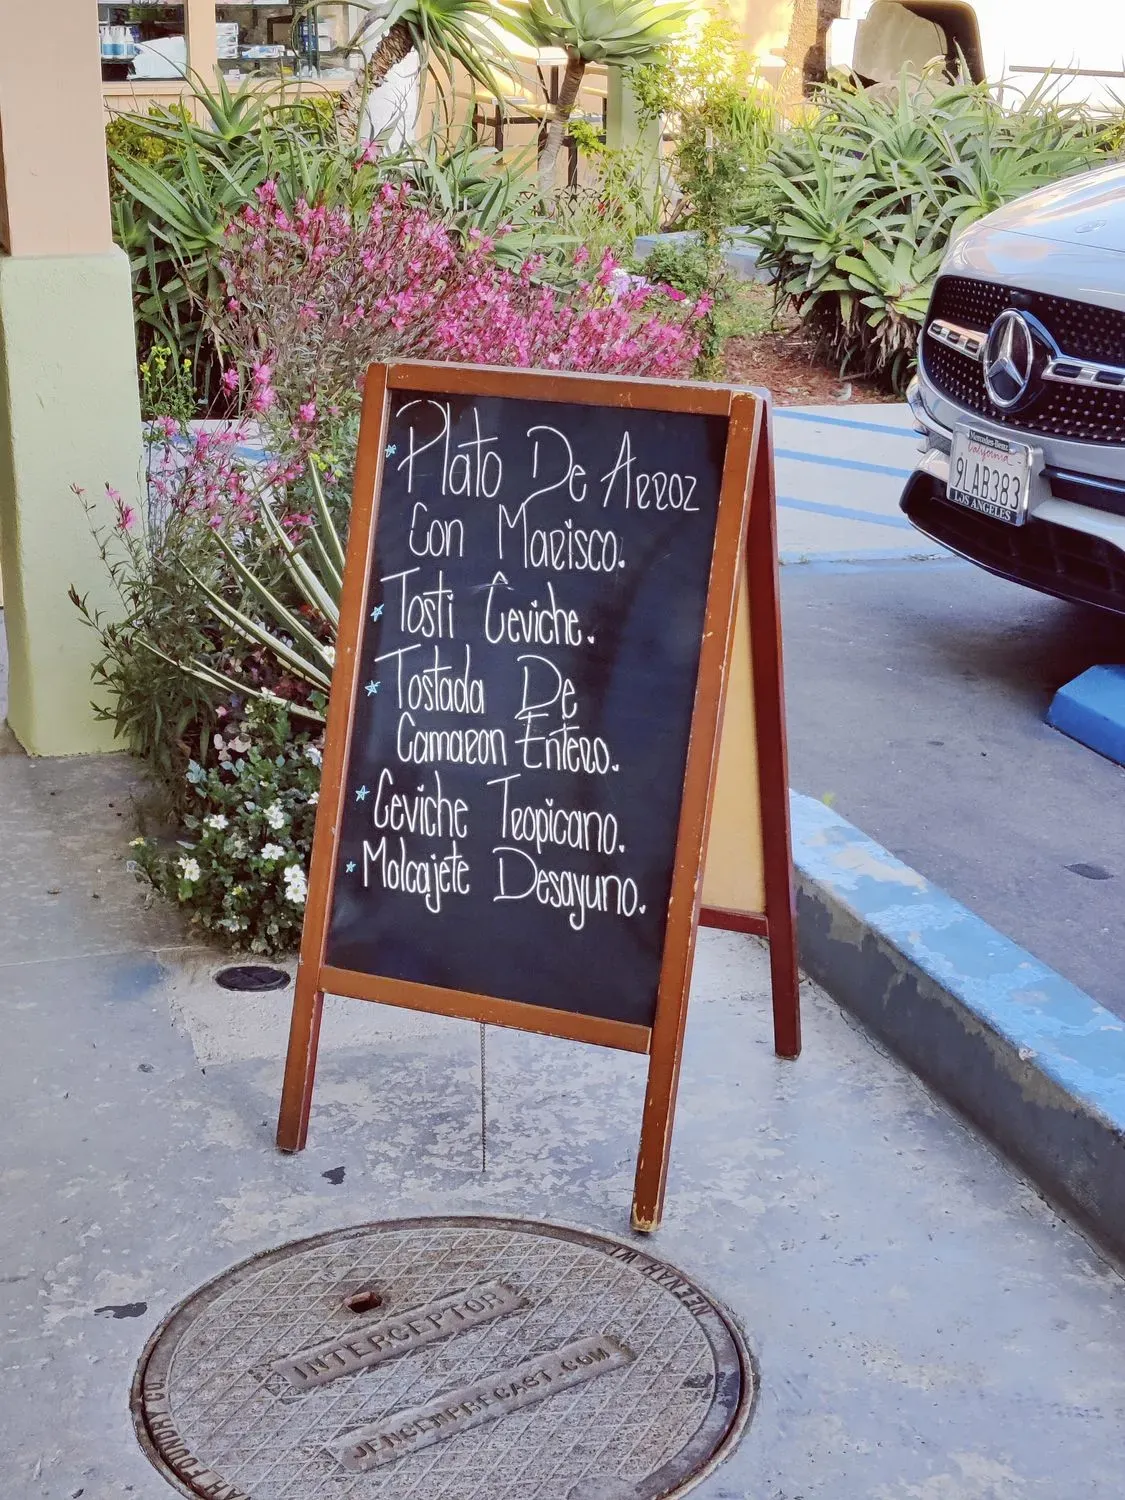 Plato De Arroz
Con Marisco.
Tosti Ceviche.
Tostada De
Camaron Entero.
Ceviche Tropicano.
Molcajete Desayuno.
Mercedes-Benz
California
9LAB383
LOS ANGELES
NEENAH WI
INTERCEPTOR
JENSENPRECAST.COM
NAH FOUNDRY CO.